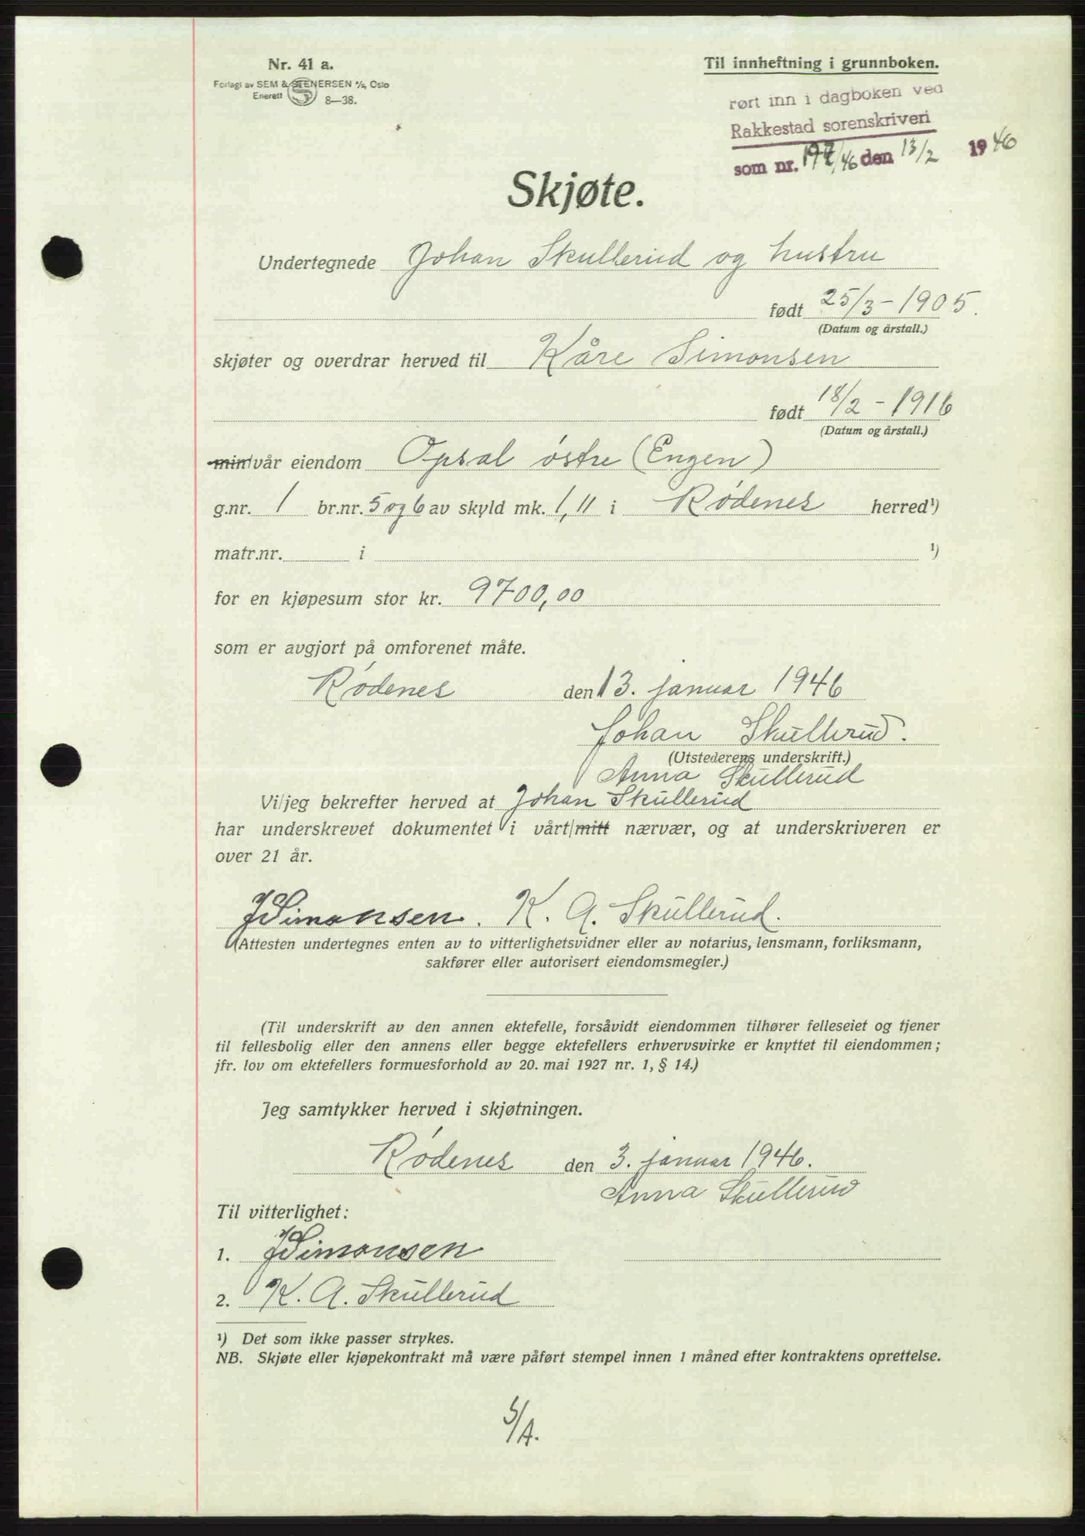 Nr. 41 a.
Forlagt av SEM & STENERSEN A/S, Oslo
Enerett 8—38.
Til innheftning i grunnboken.
ført inn i dagboken ved
Rakkestad sorenskriveri
som nr. 197/46 den 13/2 1946
Skjøte.
Undertegnede Johan Skullerud og hustru
født 25/3-1905.
(Datum og årstall.)
skjøter og overdrar herved til Kåre Simonsen
født 18/2-1916
(Datum og årstall.)
min/vår eiendom Opsal østre (Engen)
g.nr. 1 br.nr. 5 og 6 av skyld mk. 1,11 i Rødenes herred¹)
matr.nr. i ¹)
for en kjøpesum stor kr. 9700,00
som er avgjort på omforenet måte.
Rødenes den 13. januar 1946
Johan Skullerud.
(Utstederens underskrift.)
Anna Skullerud
Vi/jeg bekrefter herved at Johan Skullerud
har underskrevet dokumentet i vårt/mitt nærvær, og at underskriveren er
over 21 år.
J Simonsen. K. A. Skullerud.
(Attesten undertegnes enten av to vitterlighetsvidner eller av notarius, lensmann, forliksmann,
sakfører eller autorisert eiendomsmegler.)
(Til underskrift av den annen ektefelle, forsåvidt eiendommen tilhører felleseiet og tjener
til fellesbolig eller den annens eller begge ektefellers erhvervsvirke er knyttet til eiendommen;
jfr. lov om ektefellers formuesforhold av 20. mai 1927 nr. 1, § 14.)
Jeg samtykker herved i skjøtningen.
Rødenes den 3. januar 1946.
Anna Skullerud
Til vitterlighet:
1. J Simonsen
2. K. A. Skullerud
¹) Det som ikke passer strykes.
NB. Skjøte eller kjøpekontrakt må være påført stempel innen 1 måned efter kontraktens oprettelse.
S/A.